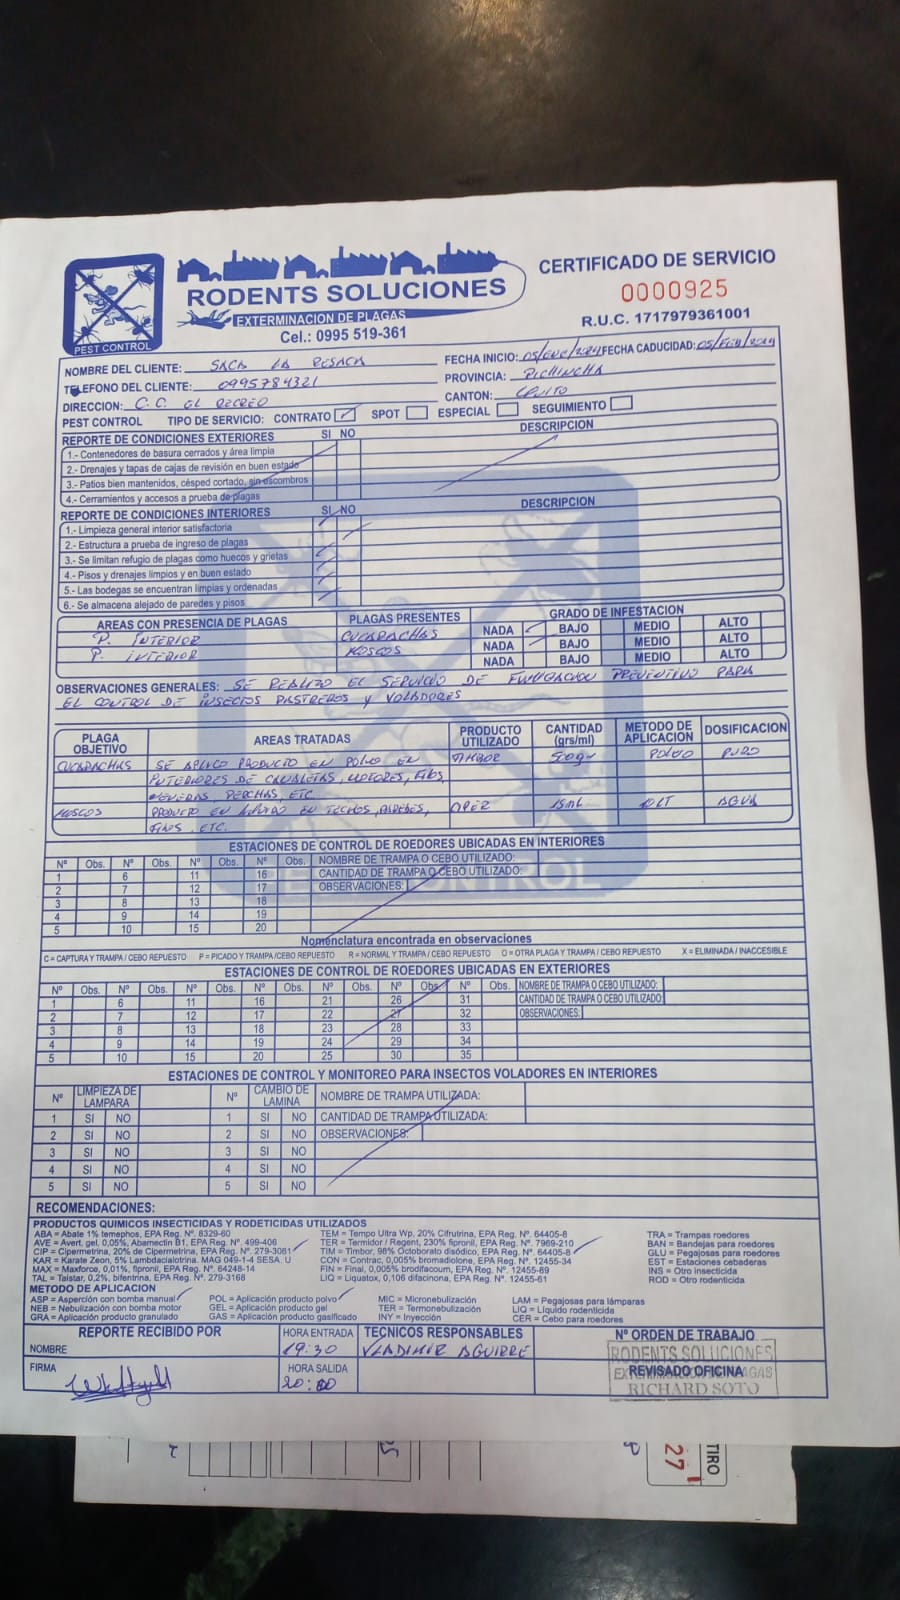 CERTIFICADO DE SERVICIO
RODENTS SOLUCIONES
0000925
EXTERMINACION DE PLAGAS
R.U.C. 1717979361001
PEST CONTROL
Cel.: 0995 519-361
NOMBRE DEL CLIENTE: SACA LA RESACA
FECHA INICIO: 05/ENE/2024 FECHA CADUCIDAD: 05/FEB/2024
TELEFONO DEL CLIENTE: 0995784321
PROVINCIA: PICHINCHA
DIRECCION: C.C. EL RECREO
CANTON: QUITO
PEST CONTROL TIPO DE SERVICIO: CONTRATO SPOT ESPECIAL SEGUIMIENTO
REPORTE DE CONDICIONES EXTERIORES SI NO DESCRIPCION
1.- Contenedores de basura cerrados y área limpia
2.- Drenajes y tapas de cajas de revisión en buen estado
3.- Patios bien mantenidos, césped cortado, sin escombros
4.- Cerramientos y accesos a prueba de plagas
REPORTE DE CONDICIONES INTERIORES SI NO DESCRIPCION
1.- Limpieza general interior satisfactoria
2.- Estructura a prueba de ingreso de plagas
3.- Se limitan refugio de plagas como huecos y grietas
4.- Pisos y drenajes limpios y en buen estado
5.- Las bodegas se encuentran limpias y ordenadas
6.- Se almacena alejado de paredes y pisos
AREAS CON PRESENCIA DE PLAGAS PLAGAS PRESENTES GRADO DE INFESTACION
P. INTERIOR CUCARACHAS NADA BAJO MEDIO ALTO
P. INTERIOR MOSCOS NADA BAJO MEDIO ALTO
NADA BAJO MEDIO ALTO
OBSERVACIONES GENERALES: SE REALIZO EL SERVICIO DE FUMIGACION PREVENTIVO PARA
EL CONTROL DE INSECTOS RASTREROS Y VOLADORES
PLAGA OBJETIVO AREAS TRATADAS PRODUCTO UTILIZADO CANTIDAD (grs/ml) METODO DE APLICACION DOSIFICACION
CUCARACHAS SE APLICO PRODUCTO EN POLVO EN TIMBOR 50gr POLVO PURO
INTERIORES DE CANALETAS, MOTORES, FILOS,
NEVERAS, PERCHAS, ETC.
MOSCOS PRODUCTO EN LIQUIDO EN TECHOS, PAREDES, 15ml AGUA
ETC.
ESTACIONES DE CONTROL DE ROEDORES UBICADAS EN INTERIORES
Nº Obs. Nº Obs. Nº Obs. Nº Obs. NOMBRE DE TRAMPA O CEBO UTILIZADO:
1 6 11 16 CANTIDAD DE TRAMPA O CEBO UTILIZADO:
2 7 12 17 OBSERVACIONES:
3 8 13 18
4 9 14 19
5 10 15 20
PEST CONTROL
Nomenclatura encontrada en observaciones
C = CAPTURA Y TRAMPA / CEBO REPUESTO P = PICADO Y TRAMPA /CEBO REPUESTO R = NORMAL Y TRAMPA / CEBO REPUESTO O = OTRA PLAGA Y TRAMPA / CEBO REPUESTO X = ELIMINADA / INACCESIBLE
ESTACIONES DE CONTROL DE ROEDORES UBICADAS EN EXTERIORES
Nº Obs. Nº Obs. Nº Obs. Nº Obs. Nº Obs. Nº Obs. Nº Obs. NOMBRE DE TRAMPA O CEBO UTILIZADO:
1 6 11 16 21 26 31 CANTIDAD DE TRAMPA O CEBO UTILIZADO:
2 7 12 17 22 27 32 OBSERVACIONES:
3 8 13 18 23 28 33
4 9 14 19 24 29 34
5 10 15 20 25 30 35
ESTACIONES DE CONTROL Y MONITOREO PARA INSECTOS VOLADORES EN INTERIORES
Nº LIMPIEZA DE LAMPARA Nº CAMBIO DE LAMINA NOMBRE DE TRAMPA UTILIZADA:
1 SI NO 1 SI NO CANTIDAD DE TRAMPA UTILIZADA:
2 SI NO 2 SI NO OBSERVACIONES:
3 SI NO 3 SI NO
4 SI NO 4 SI NO
5 SI NO 5 SI NO
RECOMENDACIONES:
PRODUCTOS QUIMICOS INSECTICIDAS Y RODETICIDAS UTILIZADOS
ABA = Abate 1% temephos, EPA Reg. Nº. 8329-60 TEM = Tempo Ultra Wp, 20% Cifrutrina, EPA Reg. Nº 64405-8 TRA = Trampas roedores
AVE = Avert, gel, 0,05%, Abamectin B1, EPA Reg. Nº. 499-406 TER = Termidor / Regent, 230% fipronil, EPA Reg. Nº 7969-210 BAN = Bandejas para roedores
CIP = Cipermetrina, 20% de Cipermetrina, EPA Reg. Nº. 279-3081 TIM = Timbor, 98% Octoborato disódico, EPA Reg. Nº 64405-8 GLU = Pegajosas para roedores
KAR = Karate Zeon, 5% Lambdacialotrina. MAG 049-1-4 SESA. U CON = Contrac, 0,005% bromadiolone, EPA Reg. Nº 12455-34 EST = Estaciones cebaderas
MAX = Maxforce, 0,01%, fipronil, EPA Reg. Nº 64248-14 FIN = Final, 0,005% brodifacoum, EPA Reg. Nº 12455-89 INS = Otro insecticida
TAL = Talstar, 0.2%, bifentrina, EPA Reg. Nº 279-3168 LIQ = Liquatox, 0,106 difacinona, EPA Reg. Nº 12455-61 ROD = Otro rodenticida
METODO DE APLICACION
ASP = Asperción con bomba manual POL = Aplicación producto polvo MIC = Micronebulización LAM = Pegajosas para lámparas
NEB = Nebulización con bomba motor GEL = Aplicación producto gel TER = Termonebulización LIQ = Líquido rodenticida
GRA = Aplicación producto granulado GAS = Aplicación producto gasificado INY = Inyección CER = Cebo para roedores
REPORTE RECIBIDO POR HORA ENTRADA TECNICOS RESPONSABLES Nº ORDEN DE TRABAJO
NOMBRE 19:30 VLADIMIR AGUIRRE RODENTS SOLUCIONES
FIRMA HORA SALIDA REVISADO OFICINA
20:00 RICHARD SOTO
TIRO
27